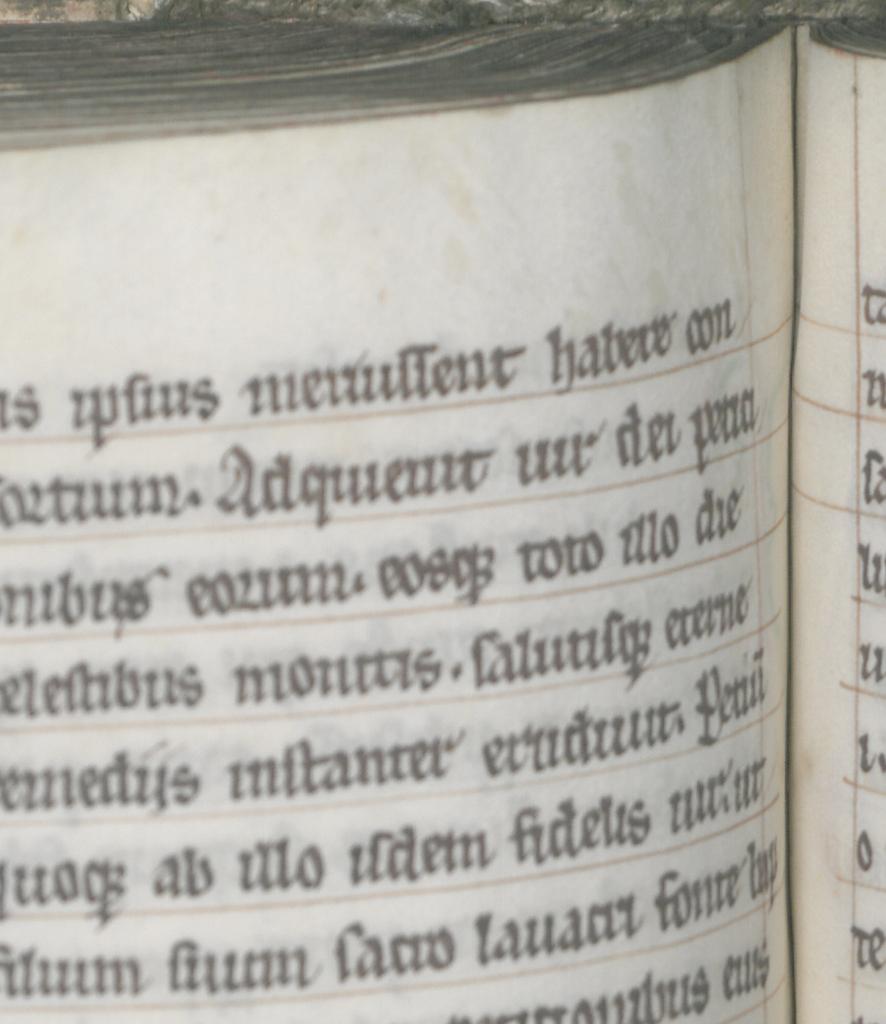 ıs ipsius meruissent habere con
sortium. Adquieuit uir dei peticı
onibus eorum. eosq; toto illo die
celestibus monitis. salutisq; eterne
remedijs instanter erudiuit. Petiit
quoq; ab illo isdem fidelis uir. ut
filium suum sacro lauacri fonte
petitionibus eius
ta
n
sa
lu
u
ı.
o
te